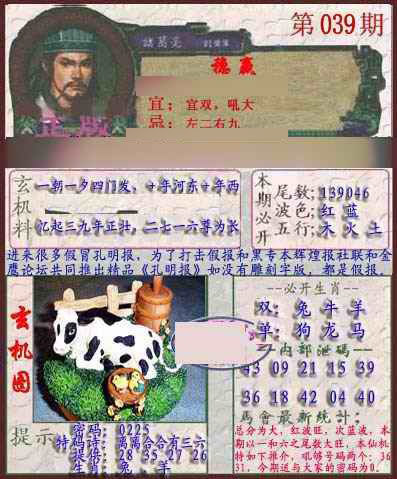 第039期
諸葛亮
穩贏
宜:宜双,吼大
忌:左二右九
正版
玄机料
一朝一夕四门发,十年河东十年西
忆起三九年正壮,二七一六尊为长
本期必开
尾数:139046
波色:红 蓝
五行:木 火 土
进来很多假冒孔明报,为了打击假报和黑专本辉煌报社联和金
鹰论坛共同推出精品《孔明报》如没有雕刻字版,都是假报.
玄机图
--必开生肖--
双:兔 牛 羊
单:狗 龙 马
内部泄码
43 09 21 15 39
36 18 42 04 40
馬會最新統計:
总分为大,红波旺,次蓝波,本
期以一和六之尾数大旺,本仙机
特如下推介,吼够号码两个:36
31,今期送与大家的密码为0.
提示
密码:0225
特码诗:离离合合有三六
提供:28 35 27 26
生肖:兔、羊